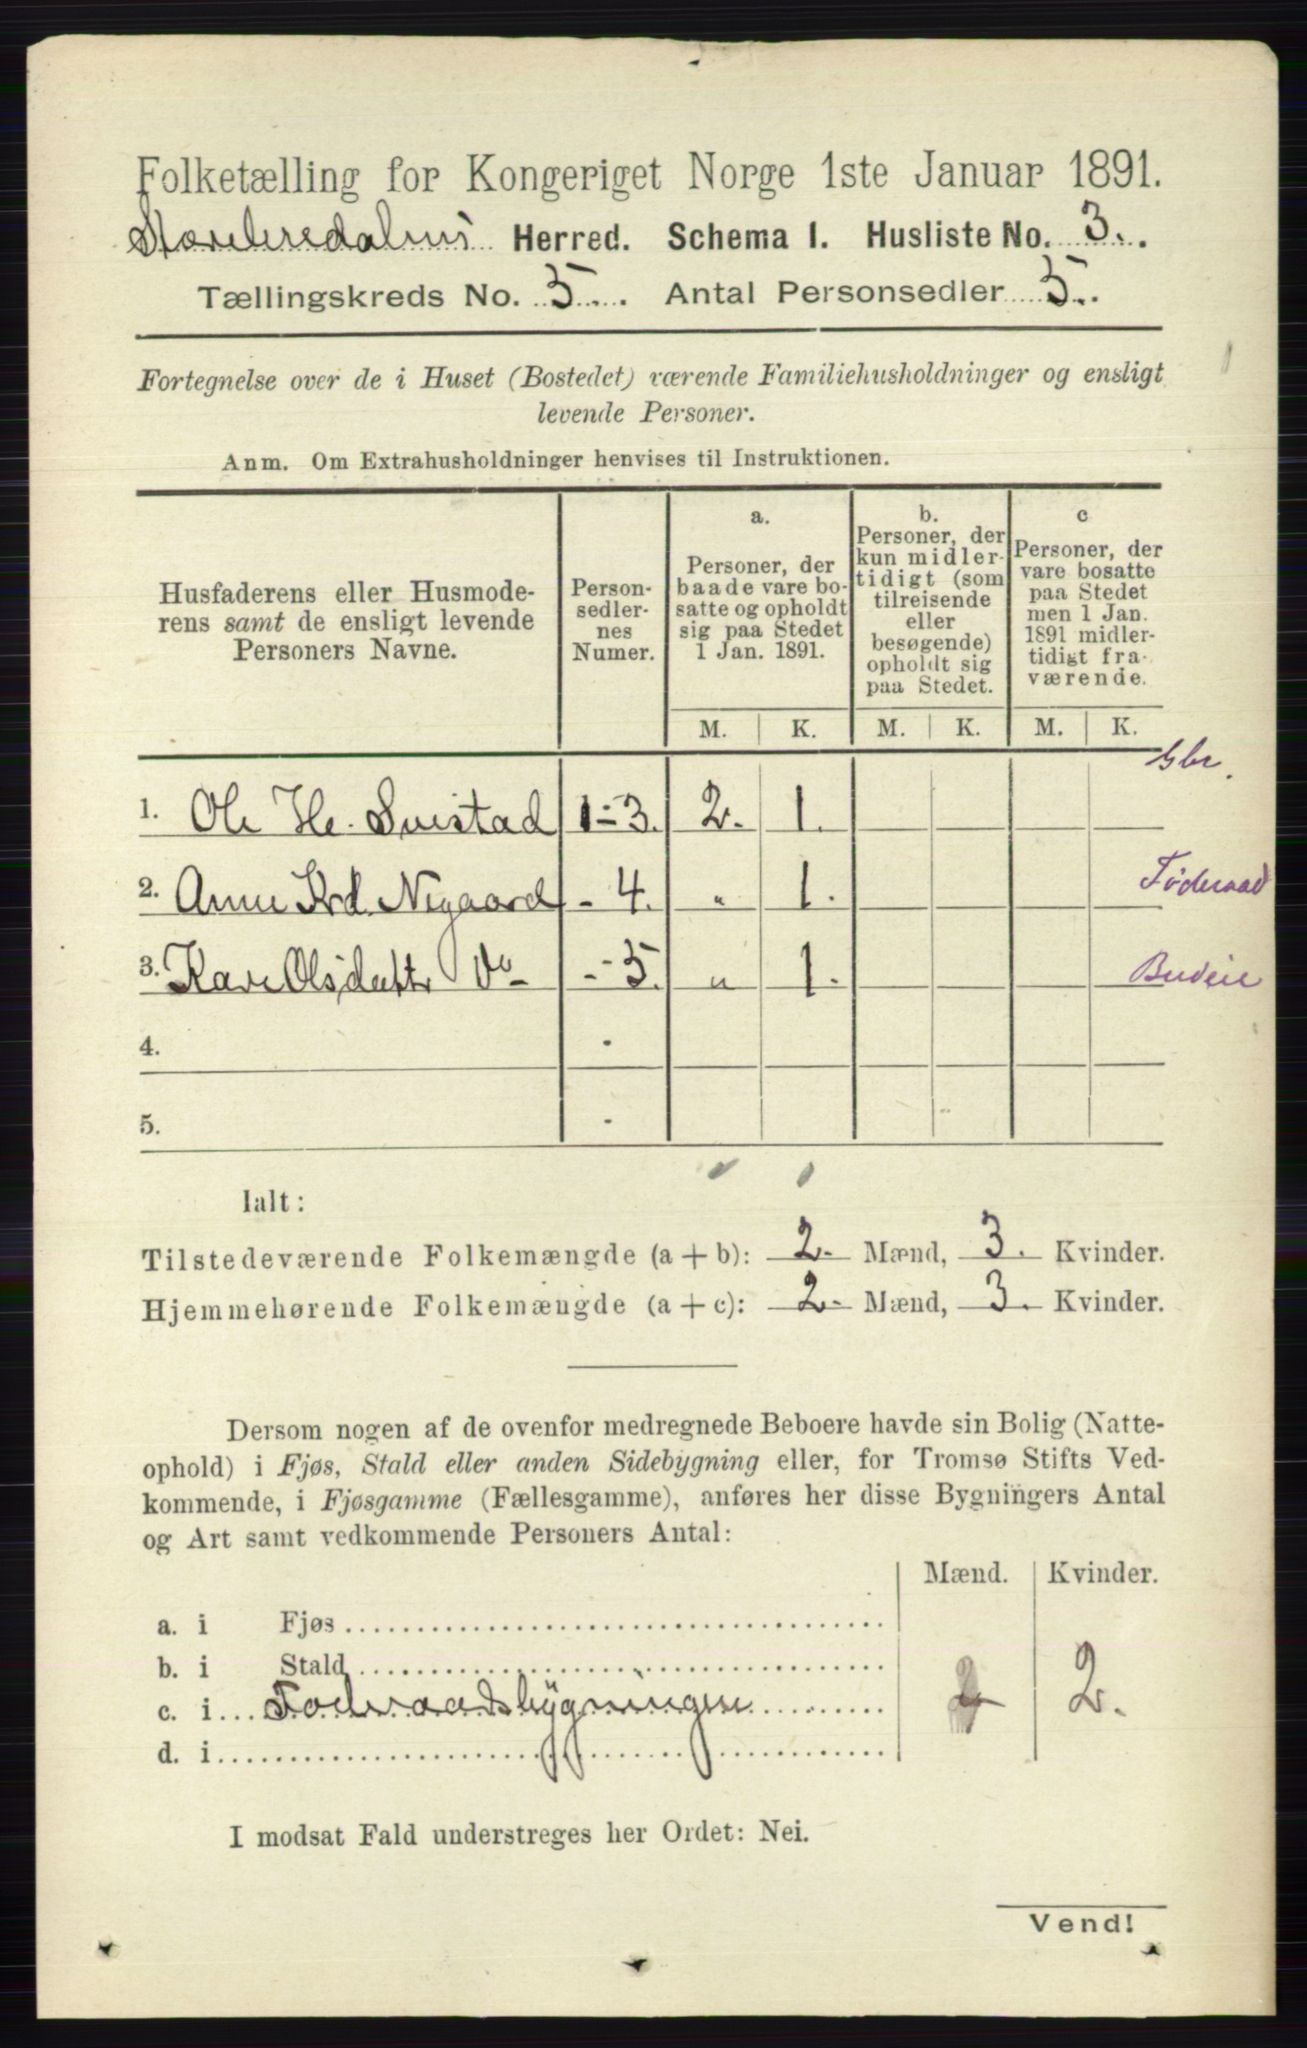 Folketælling for Kongeriget Norge 1ste Januar 1891.
Storelvedalens Herred. Schema I. Husliste No. 3.
Tællingskreds No. 5. Antal Personsedler 5.
Fortegnelse over de i Huset (Bostedet) værende Familiehusholdninger og ensligt
levende Personer.
Anm. Om Extrahusholdninger henvises til Instruktionen.
Husfaderens eller Husmode-
rens samt de ensligt levende
Personers Navne.
Person-
sedler-
nes
Numer.
a.
Personer, der
baade vare bo-
satte og opholdt
sig paa Stedet
1 Jan. 1891.
b.
Personer, der
kun midler-
tidigt (som
tilreisende
eller
besøgende)
opholdt sig
paa Stedet.
c
Personer, der
vare bosatte
paa Stedet
men 1 Jan.
1891 midler-
tidigt fra-
værende.
M. K. M. K. M. K.
Gbr.
1. Ole He. Svestad 1-3. 2. 1.
2. Anne Krd. Nygaard - 4. " 1. Føderaad
3. Kari Olsdattr Do - 5. " 1. Budeie
4. -
5. -
Ialt:
Tilstedeværende Folkemængde (a + b): 2. Mænd, 3. Kvinder.
Hjemmehørende Folkemængde (a + c): 2. Mænd, 3. Kvinder.
Dersom nogen af de ovenfor medregnede Beboere havde sin Bolig (Natte-
ophold) i Fjøs, Stald eller anden Sidebygning eller, for Tromsø Stifts Ved-
kommende, i Fjøsgamme (Fællesgamme), anføres her disse Bygningers Antal
og Art samt vedkommende Personers Antal:
Mænd. Kvinder.
a. i Fjøs
b. i Stald
c. i Foderaadsbygningen 2 2.
d. i
I modsat Fald understreges her Ordet: Nei.
Vend!